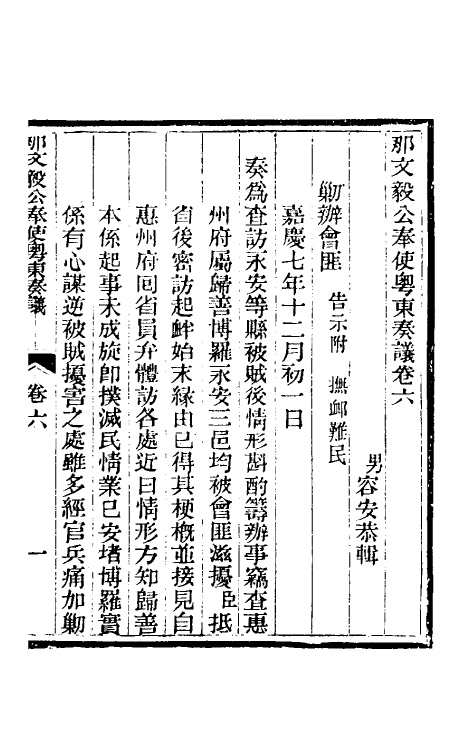 那文毅公奉使粵東奏議卷六
男容安恭輯
勦辦會匪 告示附 撫䘏難民
嘉慶七年十二月初一日
奏爲查訪永安等縣被賊後情形斟酌籌辦事竊查惠
州府屬歸善博羅永安三邑均被會匪滋擾臣抵
省後密訪起衅始末緣由已得其梗槪並接見自
惠州府囘省員弁體訪各處近日情形方知歸善
本係起事未成旋卽撲滅民情業已安堵博羅實
係有心謀逆被賊擾害之處雖多經官兵痛加勦
那文毅公奉使粵東奏議 卷六 一